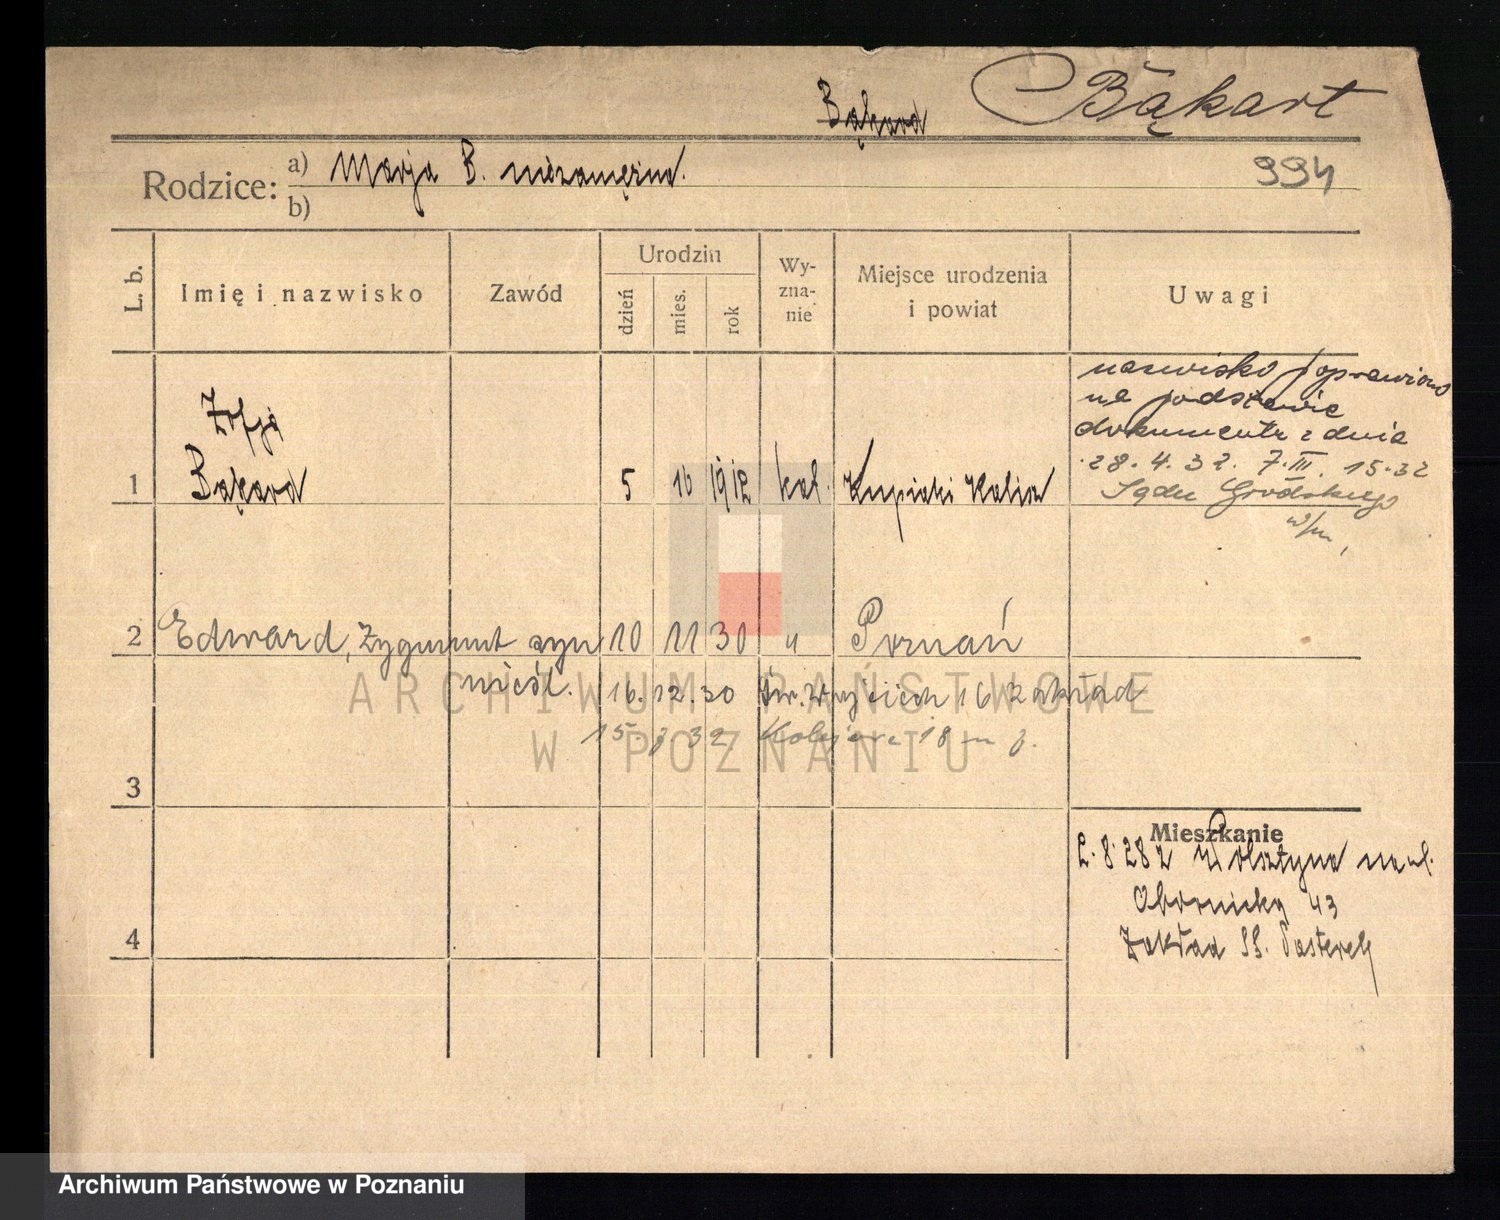 Bąkard Bąkart
Rodzice: a) Marja B. niezamężna.
b)
994
L. b.
Imię i nazwisko
Zawód
Urodzin
dzień
mies.
rok
Wy-
zna-
nie
Miejsce urodzenia
i powiat
Uwagi
nazwisko poprawiono
na podstawie
dokumentu z dnia
28. 4. 32. 7. III. 15.32
Sądu Grodzkiego
w/m
Zofja
1 Bąkard 5 10 1912 kat.
2 Edward, Zygmunt syn 10 11 30 " Poznań
nieśl. 16. 12. 30 Św. Wojciech 16 Zakład
32 18 m
3
4
Mieszkanie
Wolsztyna na ul.
Obornicką 43
Zakład SS. Pasterek
ARCHIWUM PAŃSTWOWE
W POZNANIU
Archiwum Państwowe w Poznaniu